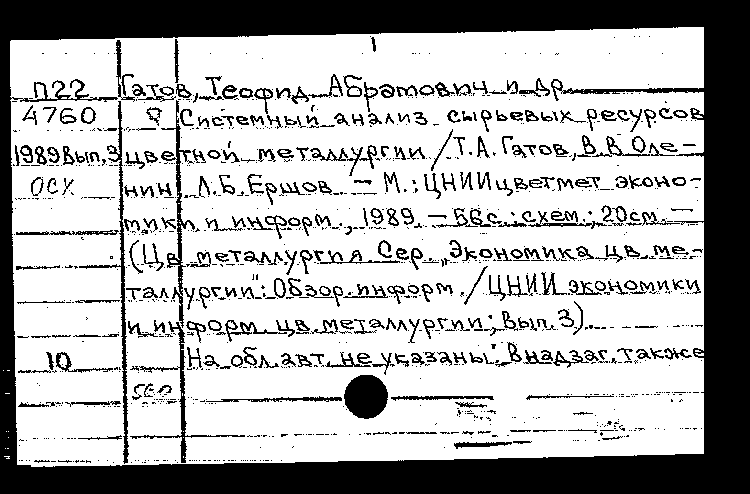 П22 Гатов, Теофид Абрамович и др
4760 Системный анализ сырьевых ресурсов
1989 вып.3 цветной металлургии / Т.А. Гатов, В.В Оле-
осх нин Л.Б. Ершов — М.: ЦНИИцветмет эконо-
мики и информ., 1989. — 56с.: схем.; 20см. —
(Цв металлургия Сер. „Экономика цв. ме-
таллургии": Обзор. информ. / ЦНИИ экономики
и информ. цв. металлургии; Вып. 3).
10 На обл. авт. не указаны. В надзаг. также